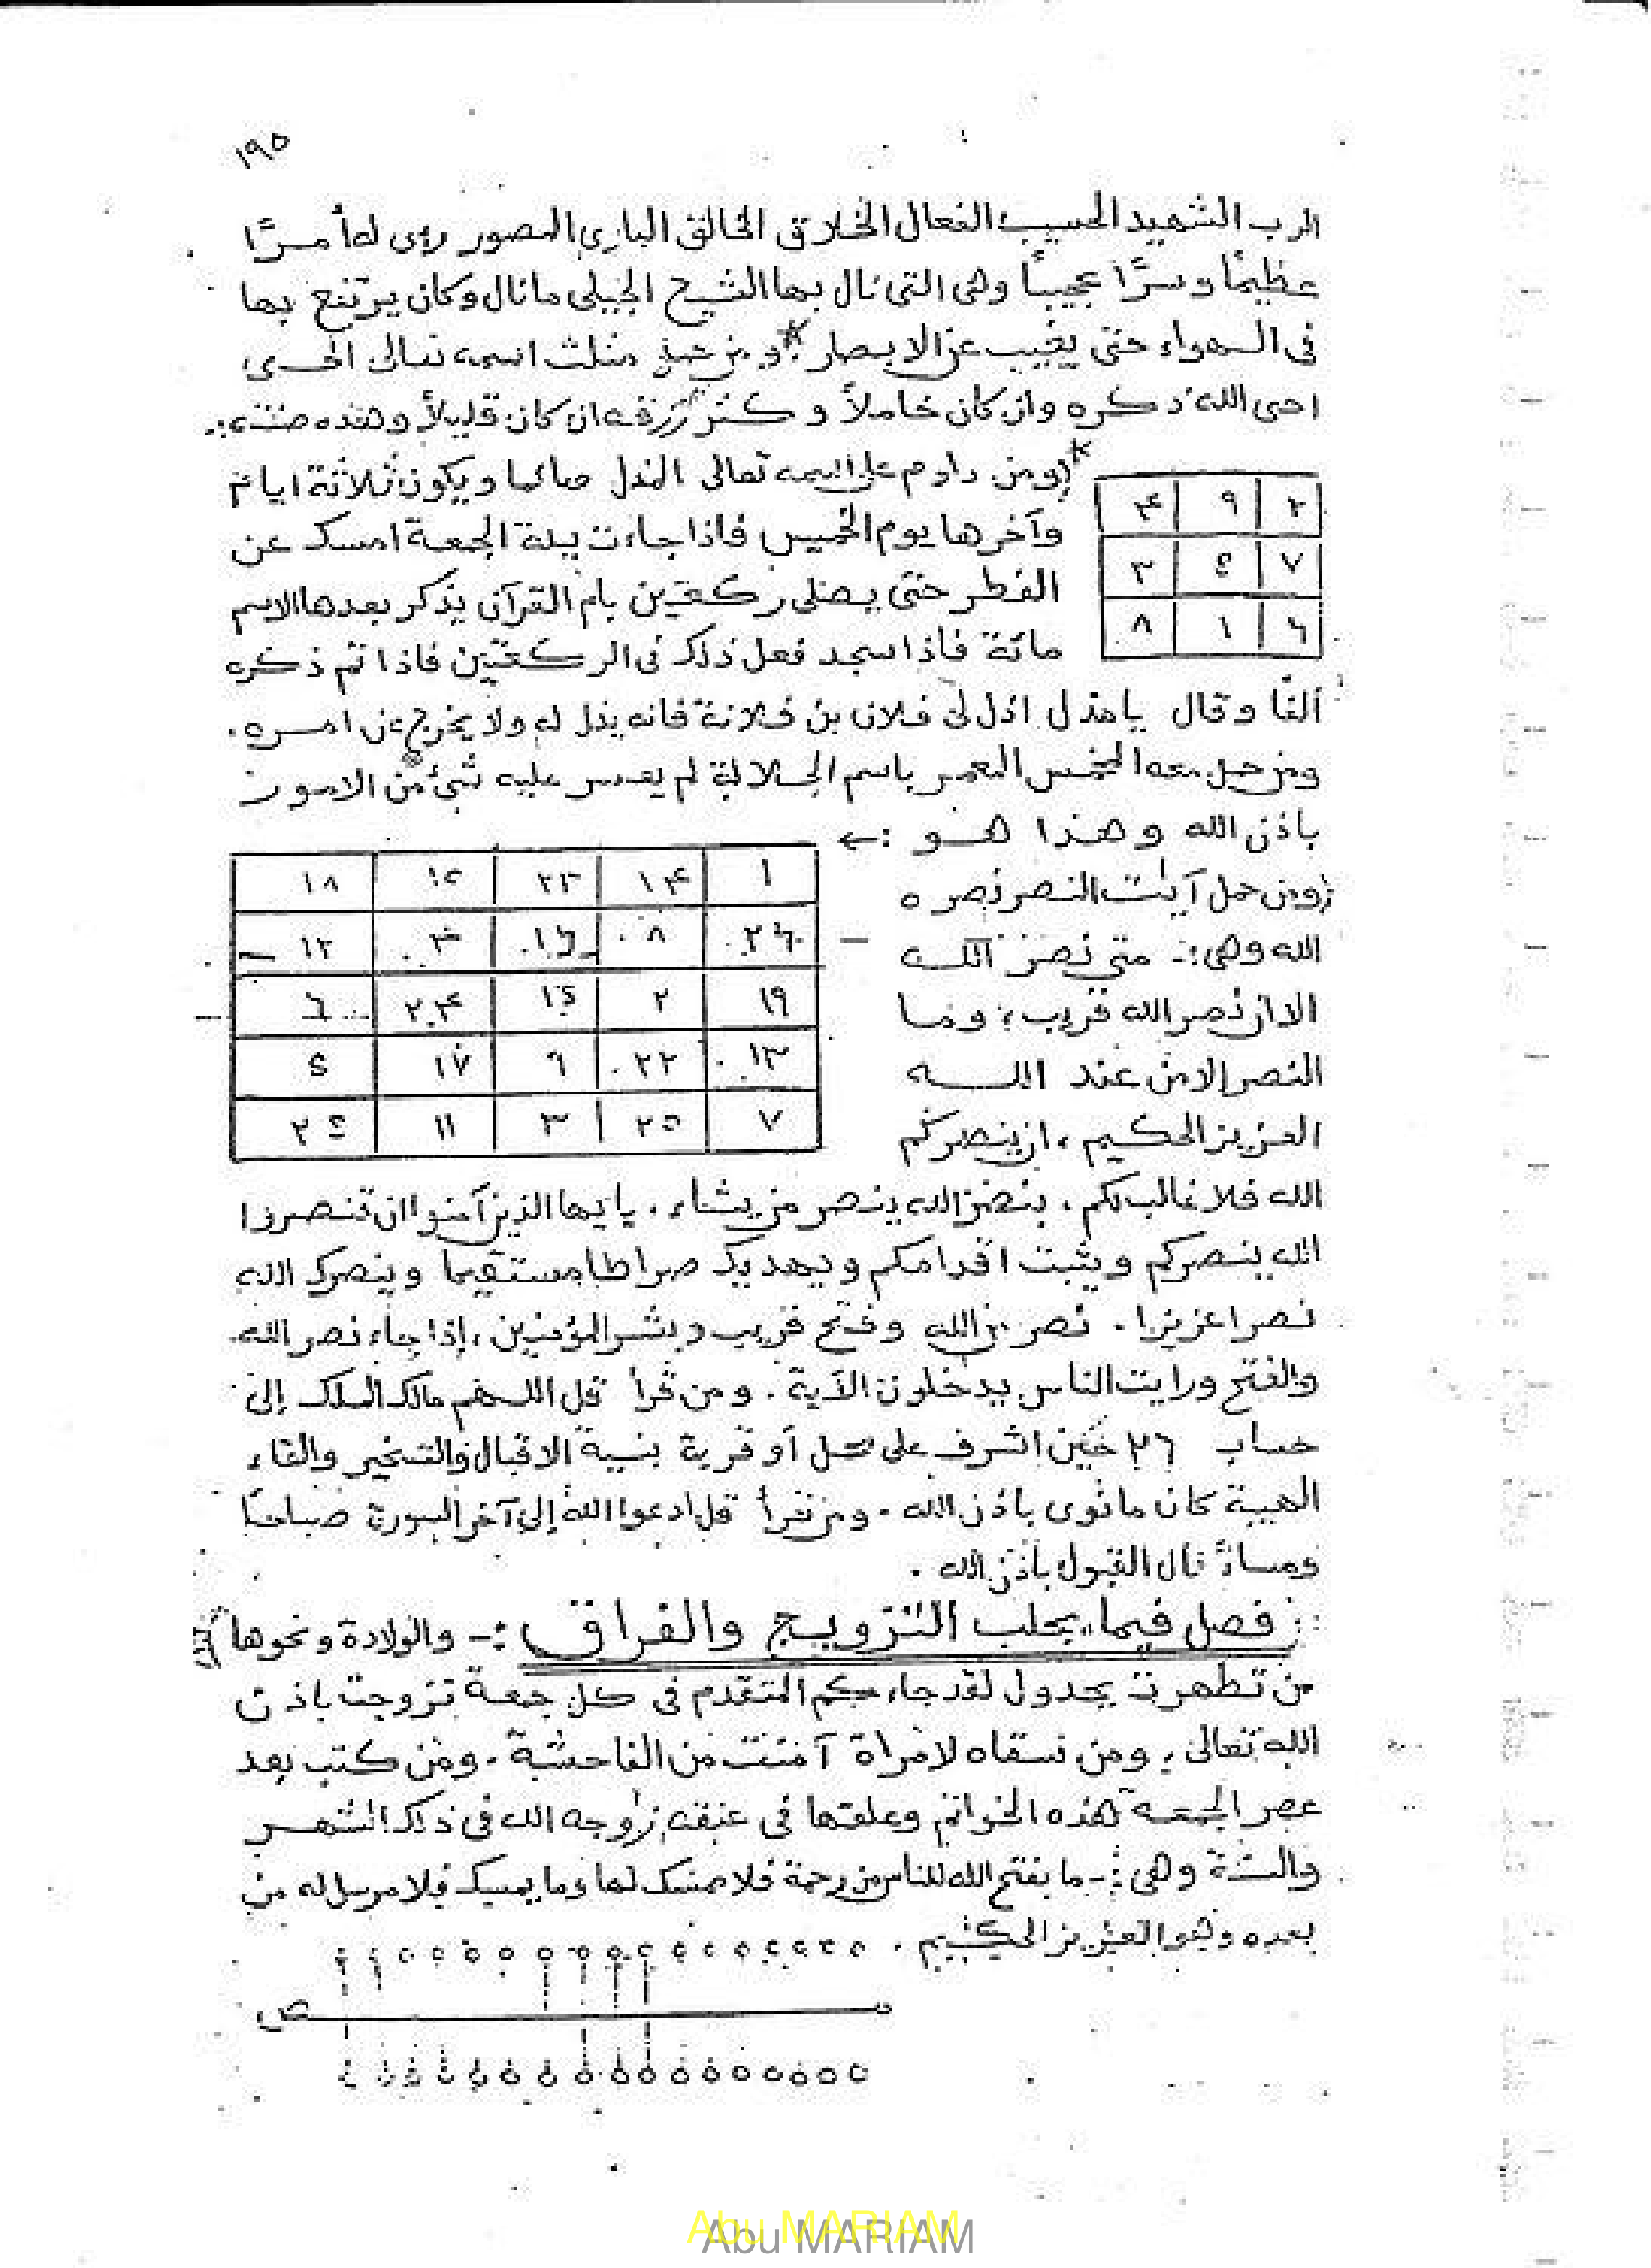 ١٩٥
الرب الشهيد الحسيب الفعال الخلاق الخالق الباري المصور رءى له أمرًا
عظيمًا وسرًا عجيبًا وهى التى نال بها الشيخ الجيلى ما نال وكان يرتفع بها
فى الهواء حتى يغيب عن الابصار * و من حمل مثلث اسمه تعالى الحى
احى الله ذكره وان كان خاملاً و كثر رزقه ان كان قليلاً وهذه صفته :
* ومن داوم على اسمه تعالى المذل صائما ويكون ثلاثة ايام
وآخرها يوم الخميس فاذا جاءت ليلة الجمعة امسك عن
الفطر حتى يصلى ركعتين بام القرآن يذكر بعدها الاسم
مائة فاذا سجد فعل ذلك فى الركعتين فاذا تم ذكره
٢ ٩ ٤
٧ ٥ ٣
٦ ١ ٨
ألفًا وقال يا مذل اذل لى فلان بن فلانة فانه يذل له ولا يخرج عن امره .
ومن حمل معه المخمس المعمر باسم الجلالة لم يعسر عليه شىء من الامور
باذن الله وهذا هو :←
١ ١٤ ٢٣ ١٥ ١٨
٢٦ ٨ ١٦ ٣ ١٢
١٩ ٢ ١٥ ٢٤
١٣ ٢٢ ٦ ١٧
٧ ٢٥ ٣ ١١ ٢٥
ومن حمل آيات النصر نصره
الله وهى :- متى نصر الله
الا ان نصر الله قريب ؛ وما
النصر إلا من عند الله
العزيز الحكيم ، ان ينصركم
الله فلا غالب لكم . بنصر الله ينصر من يشاء . يا يها الذين آمنوا ان تنصروا
الله ينصركم ويثبت اقدامكم ويهديك صراطا مستقيما وينصرك الله
نصرا عزيزا . نصر من الله وفتح قريب وبشر المؤمنين ، إذا جاء نصر الله
والفتح ورايت الناس يدخلون الآية . ومن قرأ قل اللهم مالك الملك إلى
حساب ٢٦ حين اشرف على محل أو قرية بنية الاقبال والتسخير والقاء
الهيبة كان ما نوى باذن الله . ومن قرأ قل ادعوا الله إلى آخر السورة صباحًا
ومساءً نال القبول باذن الله .
فصل فيما يجلب التزويج والفراق :- والولادة ونحوها
من تطهرت بجدول لقد جاءكم المتقدم فى كل جمعة تزوجت باذن
الله تعالى ، ومن سقاه لامراة آمنت من الفاحشة . ومن كتب بعد
عصر الجمعة هذه الخواتم وعلقها فى عنقه زوجه الله فى ذلك الشهر
والسنة وهى :- ما يفتح الله للناس من رحمة فلا ممسك لها وما يمسك فلا مرسل له من
بعده وهو العزيز الحكيم .
ص
Abu MARIAM
Abu MARIAM